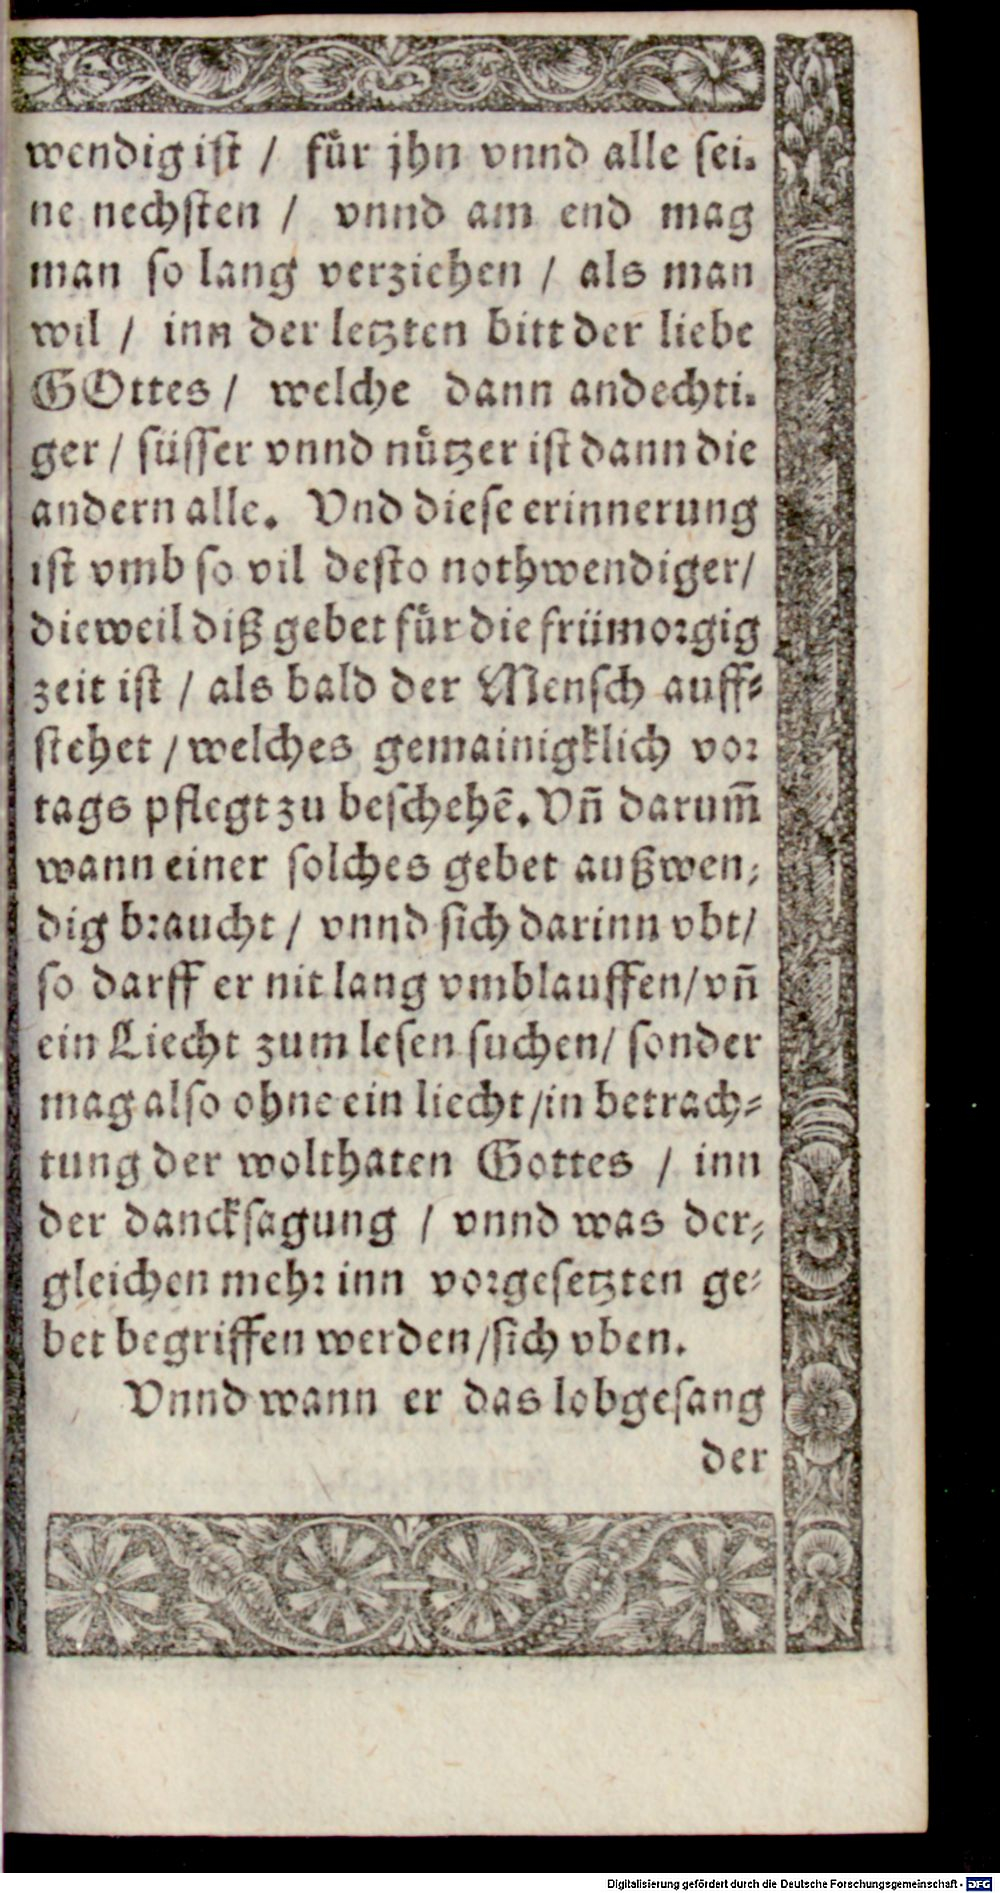 wendig ist / fuͤr jhn vnnd alle sei-
ne nechsten / vnnd am end mag
man so lang verziehen / als man
wil / inn der letzten bitt der liebe
GOttes / welche dann andechti-
ger / süsser vnnd nuͤtzer ist dann die
andern alle. Vnd diese erinnerung
ist vmb so vil desto nothwendiger /
dieweil diß gebet fuͤr die früimorgig
zeit ist / als bald der Mensch auff-
stehet / welches gemainigklich vor
tags pflegt zu beschehẽ. Vñ darum̃
wann einer solches gebet außwen-
dig braucht / vnnd sich darinn vbt /
so darff er nit lang vmblauffen / vñ
ein Liecht zum lesen suchen / sonder
mag also ohne ein liecht / in betrach-
tung der wolthaten Gottes / inn
der dancksagung / vnnd was der-
gleichen mehr inn vorgesetzten ge-
bet begriffen werden / sich vben.
Vnnd wann er das lobgesang
der
Digitalisierung gefördert durch die Deutsche Forschungsgemeinschaft - DFG